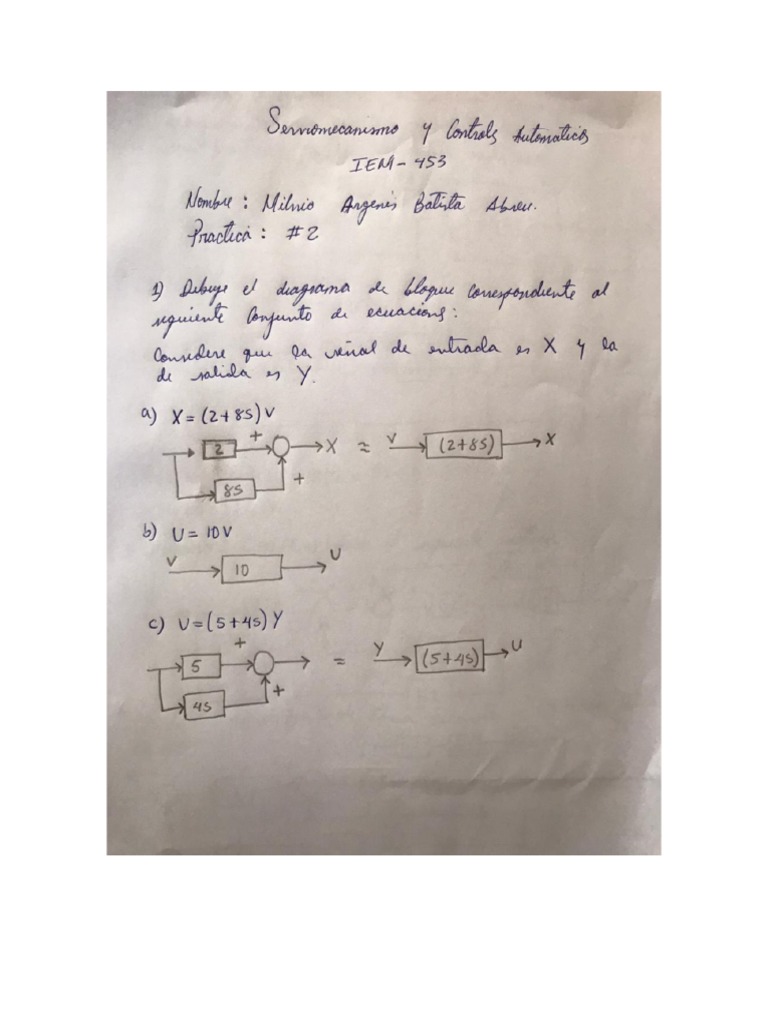 Serviomecanismo y Controls Automaticos
IEM-453
Nombre: Milvio Argenis Batista Abreu.
Practica: #2
1) Dibuje el diagrama de bloque correspondiente al
siguiente Conjunto de ecuacions:
Considere que la señal de entrada es X y la
de salida es Y.
a) X = (2+8S)V
2 + X ≈ V (2+8S) X
8S +
b) U = 10V
V 10 U
c) U = (5+4S)Y
5 + = Y (5+4S) U
4S +